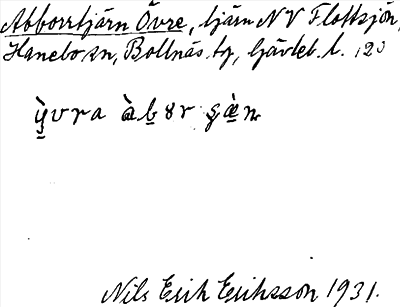 Abborrtjärn Övre, tjärn NV Flottsjön,
Hanebo sn, Bollnäs tg, Gävleb. l. 120
y̠̒vra àb̠ɤr ʂæ̠̀n
Nils Erik Eriksson 1931.